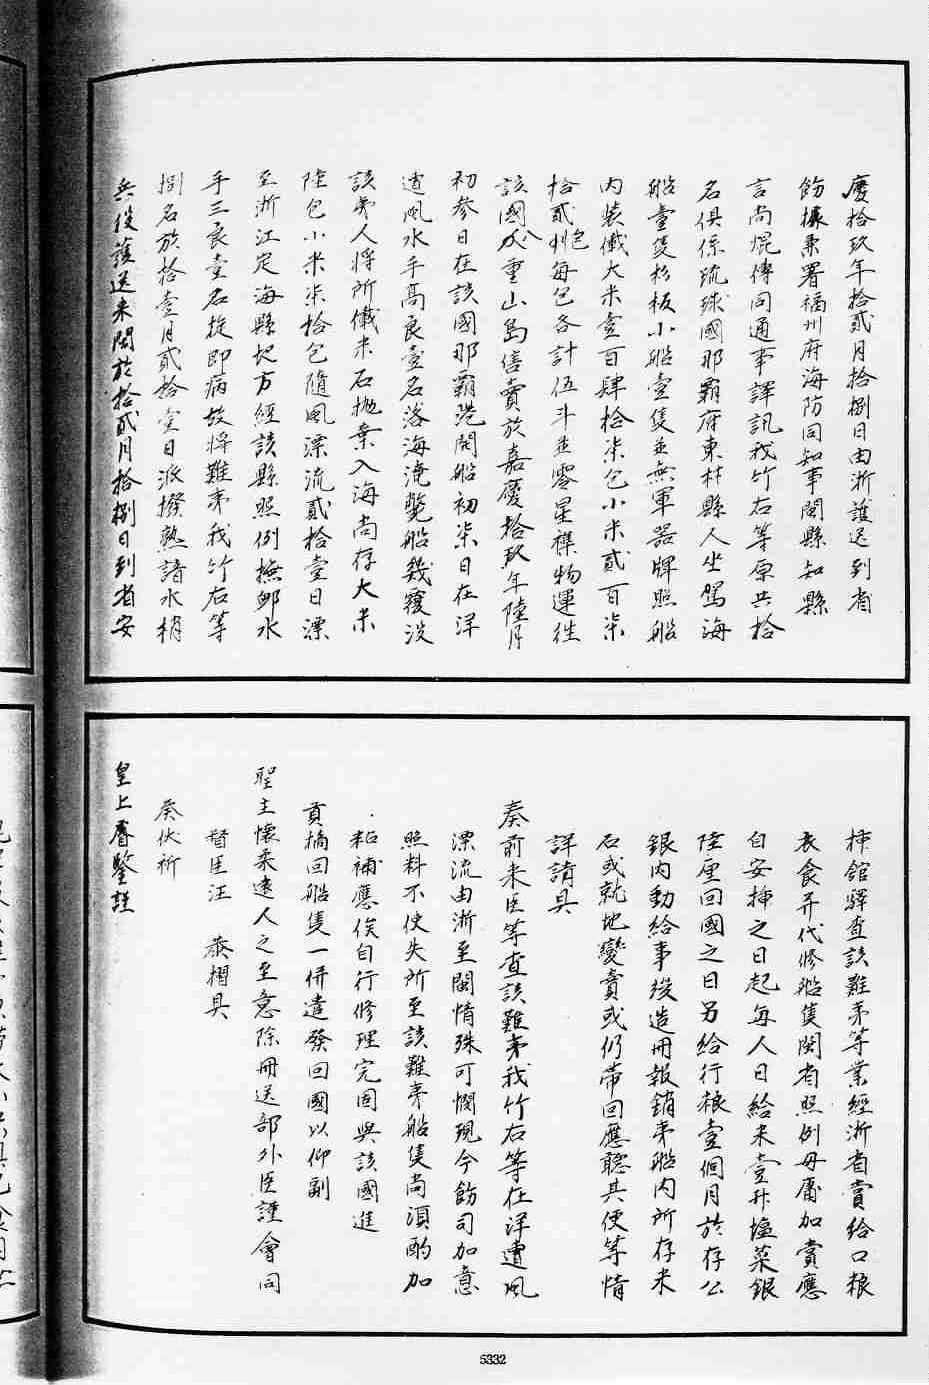 慶拾玖年拾貳月拾捌日由浙護送到省
飭據兼署福州府海防同知事閩縣知縣
言尚焜傳同通事譯訊我竹右等原共拾
名俱係琉球國那霸府東村縣人坐駕海
船壹隻杉板小船壹隻並無軍器牌照船
內裝儎大米壹百肆拾柒包小米貳百柒
拾貳包每包各計伍斗並零星襍物運往
該國八重山島售賣於嘉慶拾玖年陸月
初叁日在該國那霸港開船初柒日在洋
遭風水手高良壹名落海淹斃船幾覆沒
該夷人將所儎米石拋棄入海尚存大米
陸包小米柒拾包隨風漂流貳拾壹日漂
至浙江定海縣地方經該縣照例撫卹水
手三良壹名旋即病故將難夷我竹右等
捌名於拾壹月貳拾壹日派撥熟諳水梢
兵役護送來閩於拾貳月拾捌日到省安
插館驛查該難夷等業經浙省賞給口糧
衣食並代修船隻閩省照例毋庸加賞應
自安插之日起每人日給米壹升塩菜銀
陸厘回國之日另給行糧壹個月於存公
銀內動給事竣造冊報銷夷船內所存米
石或就地變賣或仍帶回應聽其便等情
詳請具
奏前來臣等查該難夷我竹右等在洋遭風
漂流由浙至閩情殊可憫現今飭司加意
照料不使失所至該難夷船隻尚須酌加
粘補應俟自行修理完固與該國進
貢摘回船隻一併遣發回國以仰副
聖主懷柔遠人之至意除冊送部外臣謹會同
督臣汪 恭摺具
奏伏祈
皇上睿鑒謹
5332